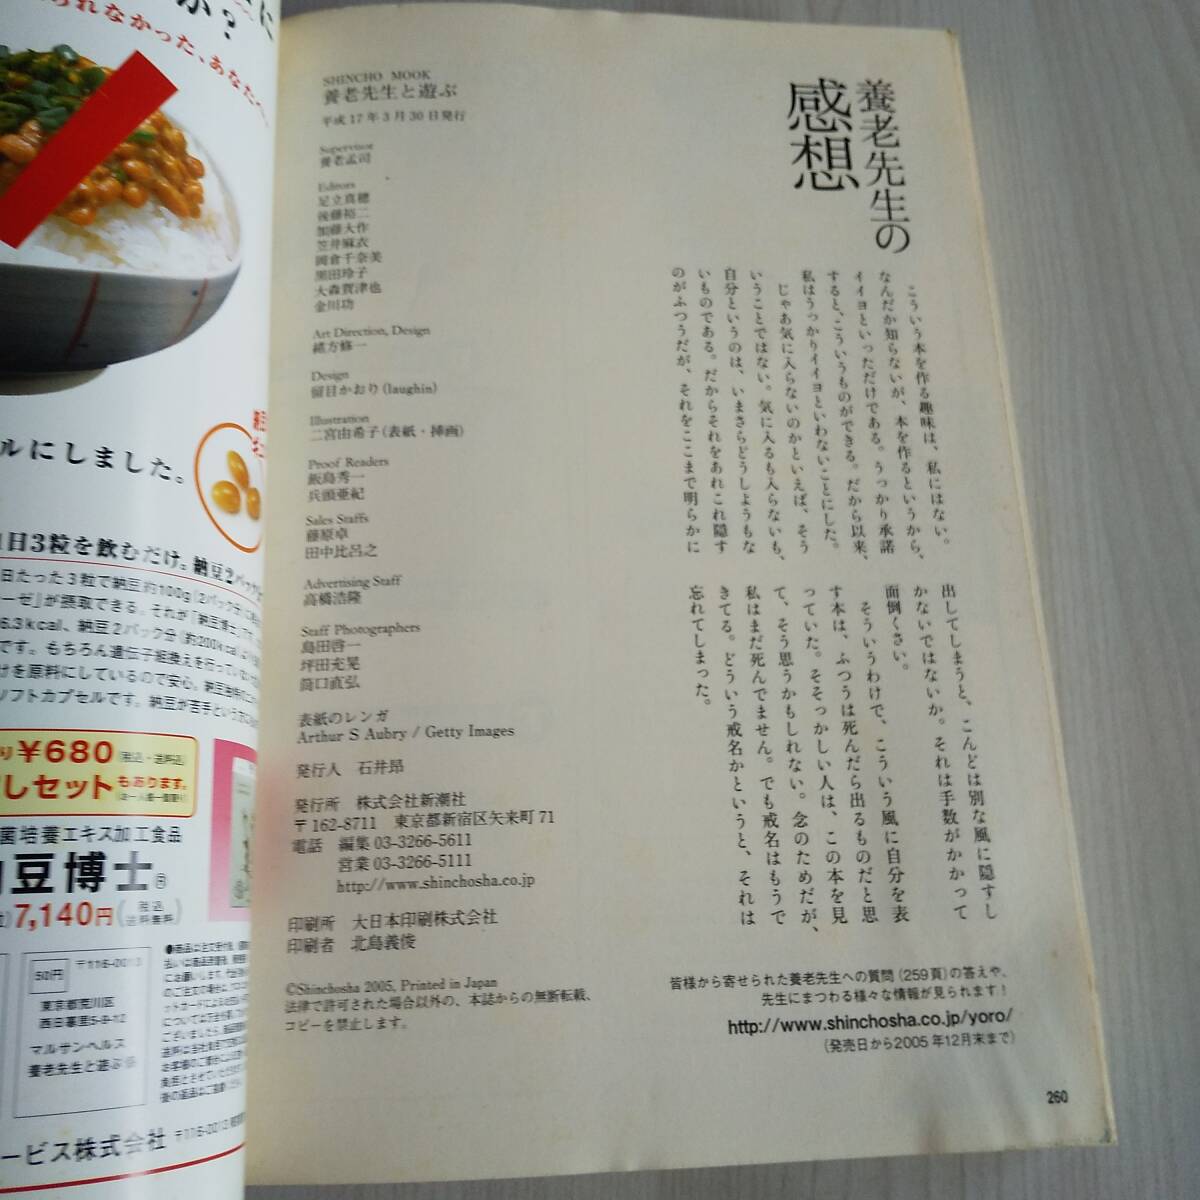 か?
られなかった、あなたへ。
ルにしました。
1日3粒を飲むだけ。納豆2パック
日たった3粒で納豆約100g(2パック分)
ーゼ」が摂取できる。それが「納豆博士」です。
6.3kcal、納豆2パック分(約200kcal)
です。もちろん遺伝子組換えを行ってい
けを原料にしているので安心。納豆独特の
ソフトカプセルです。納豆が苦手という方に
り¥680(税込・送料込)
しセットもあります。
菌培養エキス加工食品
豆博士
7,140円(税込 送料無料)
50円 〒116-0013
東京都荒川区
西日暮里5-8-12
マルサンヘルス
養老先生と遊ぶ 係
ービス株式会社 〒116-0013
SHINCHO MOOK
養老先生と遊ぶ
平成17年3月30日発行
Supervisor
養老孟司
Editors
足立真穂
後藤裕二
加藤大作
笠井麻衣
岡倉千奈美
黒田玲子
大森賀津也
金川功
Art Direction, Design
緒方修一
Design
留目かおり(laughin)
Illustration
二宮由希子(表紙・挿画)
Proof Readers
飯島秀一
兵頭亜紀
Sales Staffs
藤原卓
田中比呂之
Advertising Staff
高橋浩隆
Staff Photographers
島田啓一
坪田充晃
筒口直弘
表紙のレンガ
Arthur S Aubry / Getty Images
発行人 石井昂
発行所 株式会社新潮社
〒162-8711 東京都新宿区矢来町71
電話 編集 03-3266-5611
営業 03-3266-5111
http://www.shinchosha.co.jp
印刷所 大日本印刷株式会社
印刷者 北島義俊
©Shinchosha 2005, Printed in Japan
法律で許可された場合以外の、本誌からの無断転載、
コピーを禁止します。
養老先生の
感想
こういう本を作る趣味は、私にはない。
なんだか知らないが、本を作るというから、
イイヨといっただけである。うっかり承諾
すると、こういうものができる。だから以来、
私はうっかりイイヨといわないことにした。
じゃあ気に入らないのかといえば、そう
いうことではない。気に入るも入らないも、
自分というのは、いまさらどうしようもな
いものである。だからそれをあれこれ隠す
のがふつうだが、それをここまで明らかに
出してしまうと、こんどは別な風に隠すし
かないではないか。それは手数がかかって
面倒くさい。
そういうわけで、こういう風に自分を表
す本は、ふつうは死んだら出るものだと思
っていた。そそっかしい人は、この本を見
て、そう思うかもしれない。念のためだが、
私はまだ死んでません。でも戒名はもうで
きてる。どういう戒名かというと、それは
忘れてしまった。
皆様から寄せられた養老先生への質問(259頁)の答えや、
先生にまつわる様々な情報が見られます!
http://www.shinchosha.co.jp/yoro/
(発売日から2005年12月末まで)
260